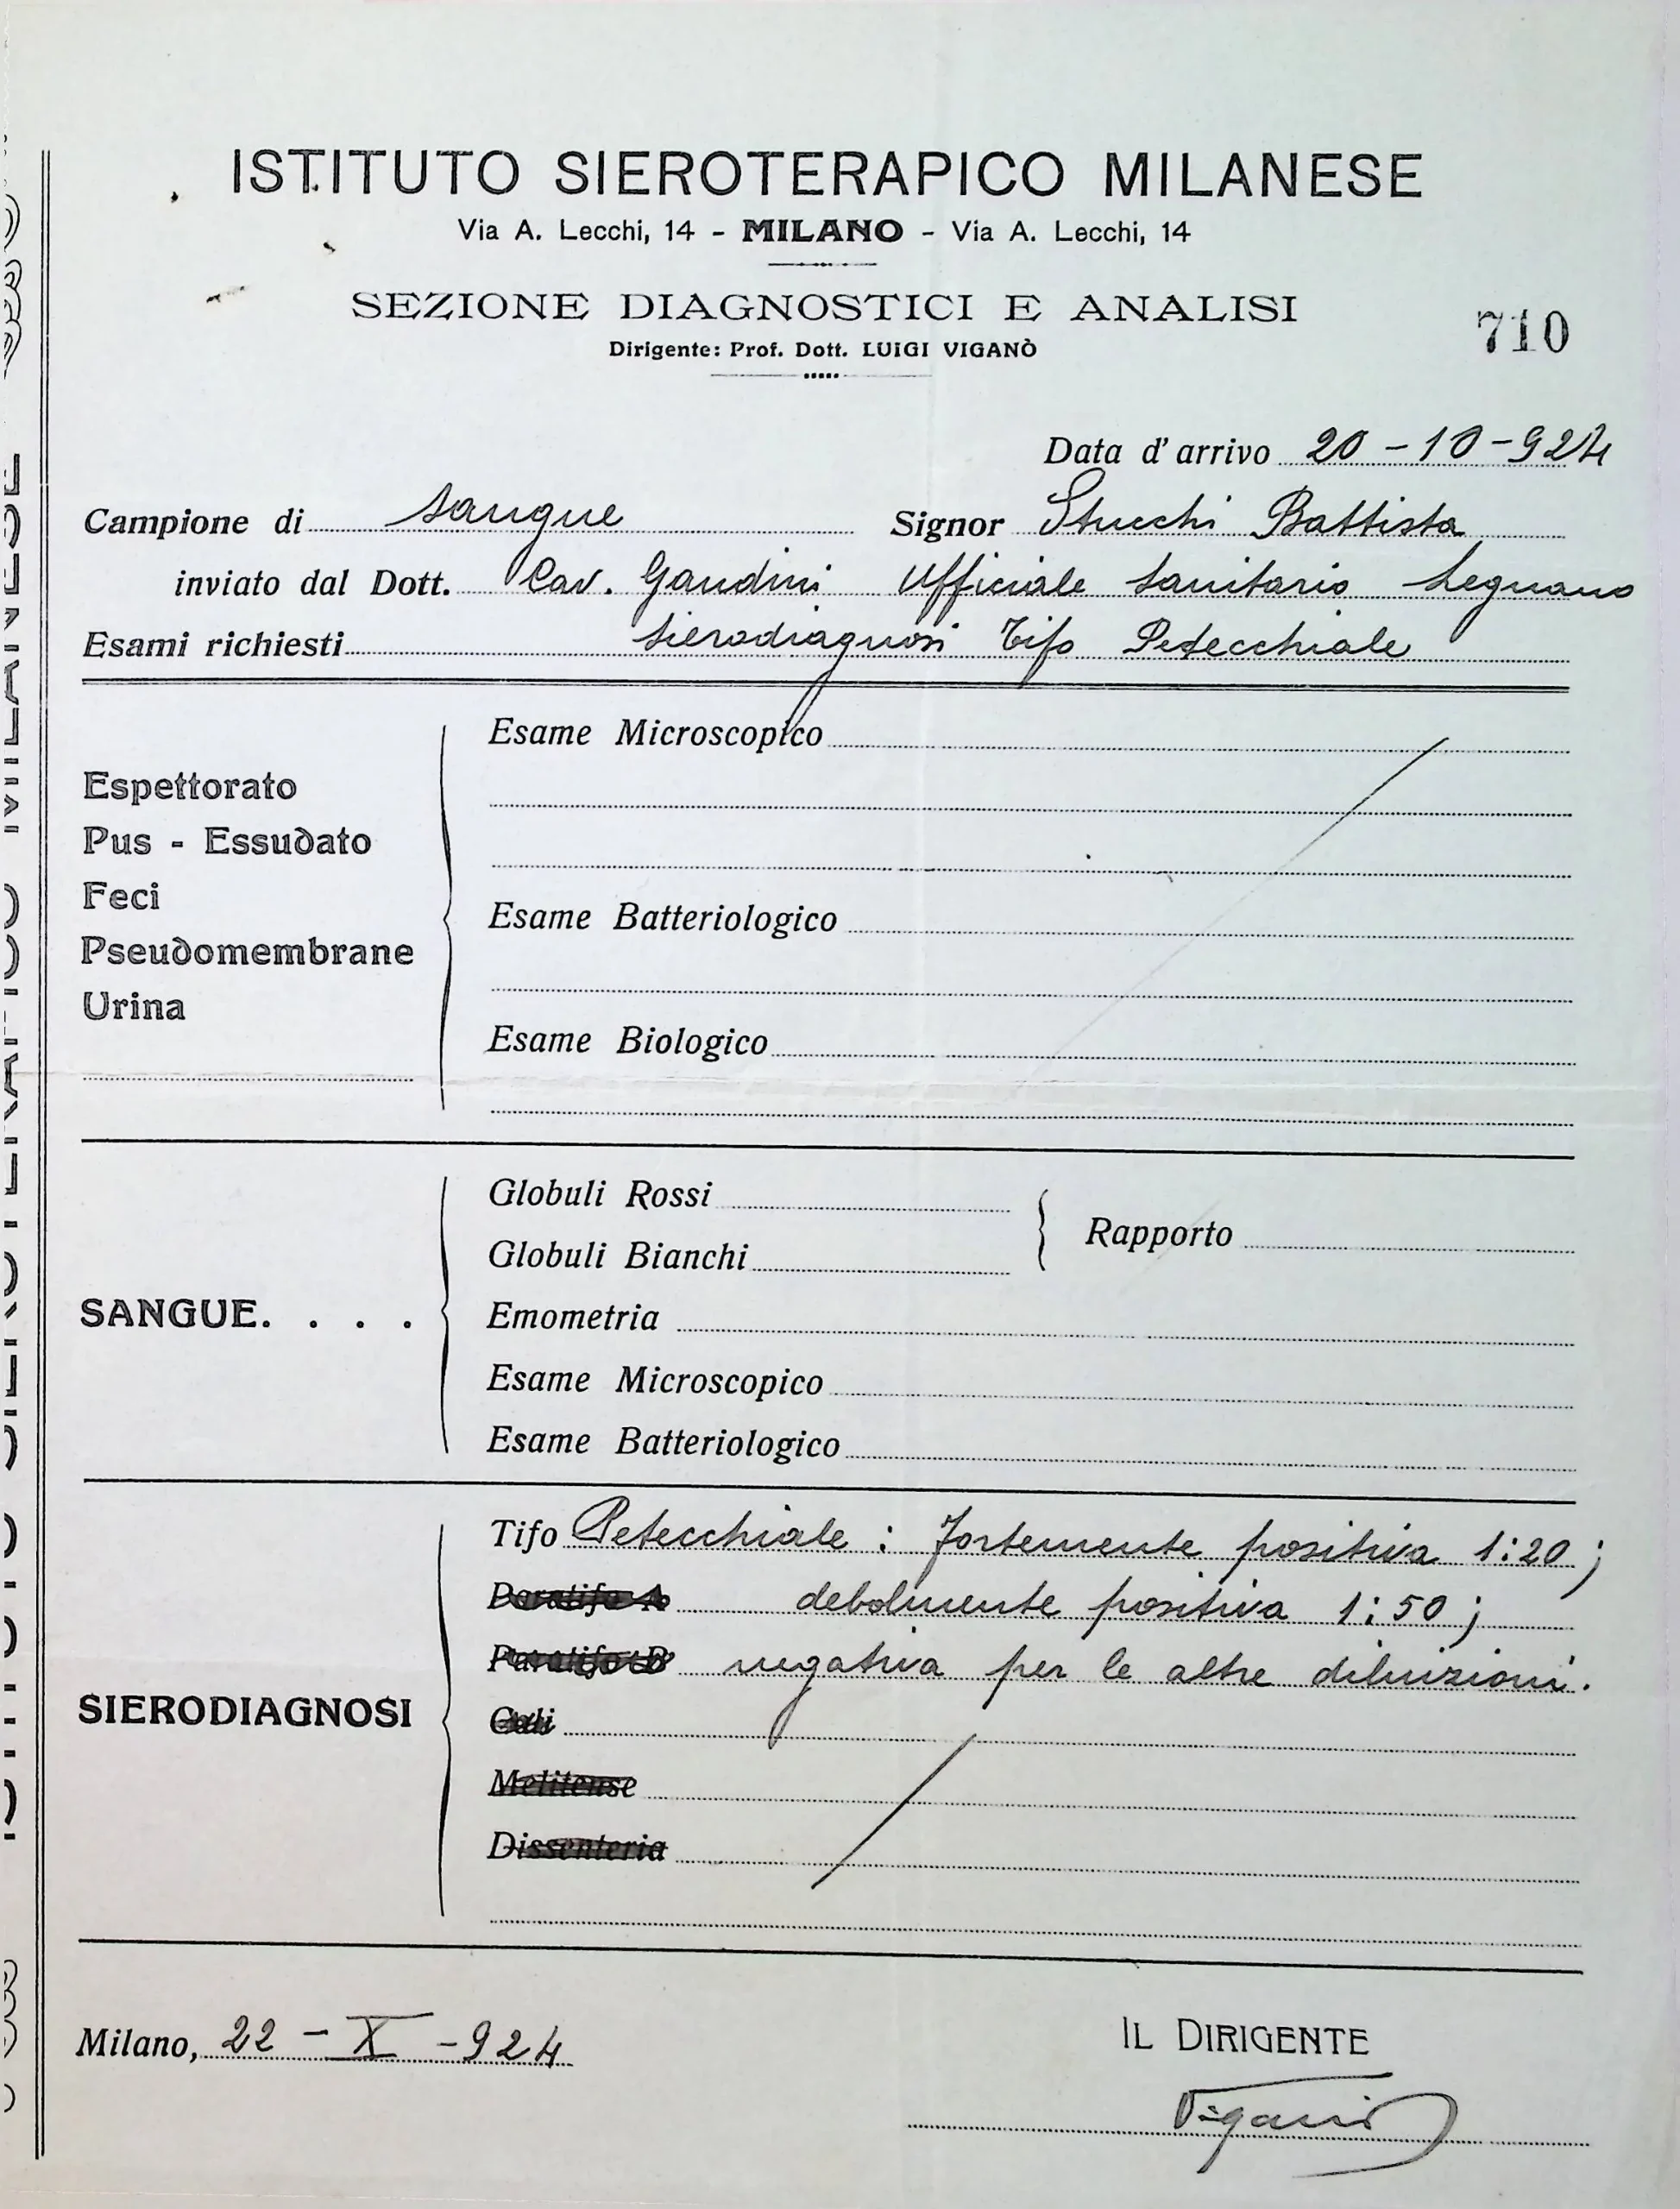 ISTITUTO SIEROTERAPICO MILANESE
Via A. Lecchi, 14 - MILANO - Via A. Lecchi, 14
SEZIONE DIAGNOSTICI E ANALISI
710
Dirigente: Prof. Dott. LUIGI VIGANÒ
Data d'arrivo 20-10-924
Campione di sangue Signor Stucchi Battista
inviato dal Dott. Cav. Gandini Ufficiale Sanitario Legnano
Esami richiesti Sierodiagnosi Tifo Petecchiale
Esame Microscopico
Espettorato
Pus - Essudato
Feci
Esame Batteriologico
Pseudomembrane
Urina
Esame Biologico
Globuli Rossi
Rapporto
Globuli Bianchi
SANGUE. . . .
Emometria
Esame Microscopico
Esame Batteriologico
Tifo Petecchiale : fortemente positiva 1:20 ;
Paratifo A debolmente positiva 1:50 ;
Paratifo B negativa per le altre diluizioni.
SIERODIAGNOSI
Coli
Melitense
Dissenteria
Milano, 22 - X - 924
IL DIRIGENTE
Viganò